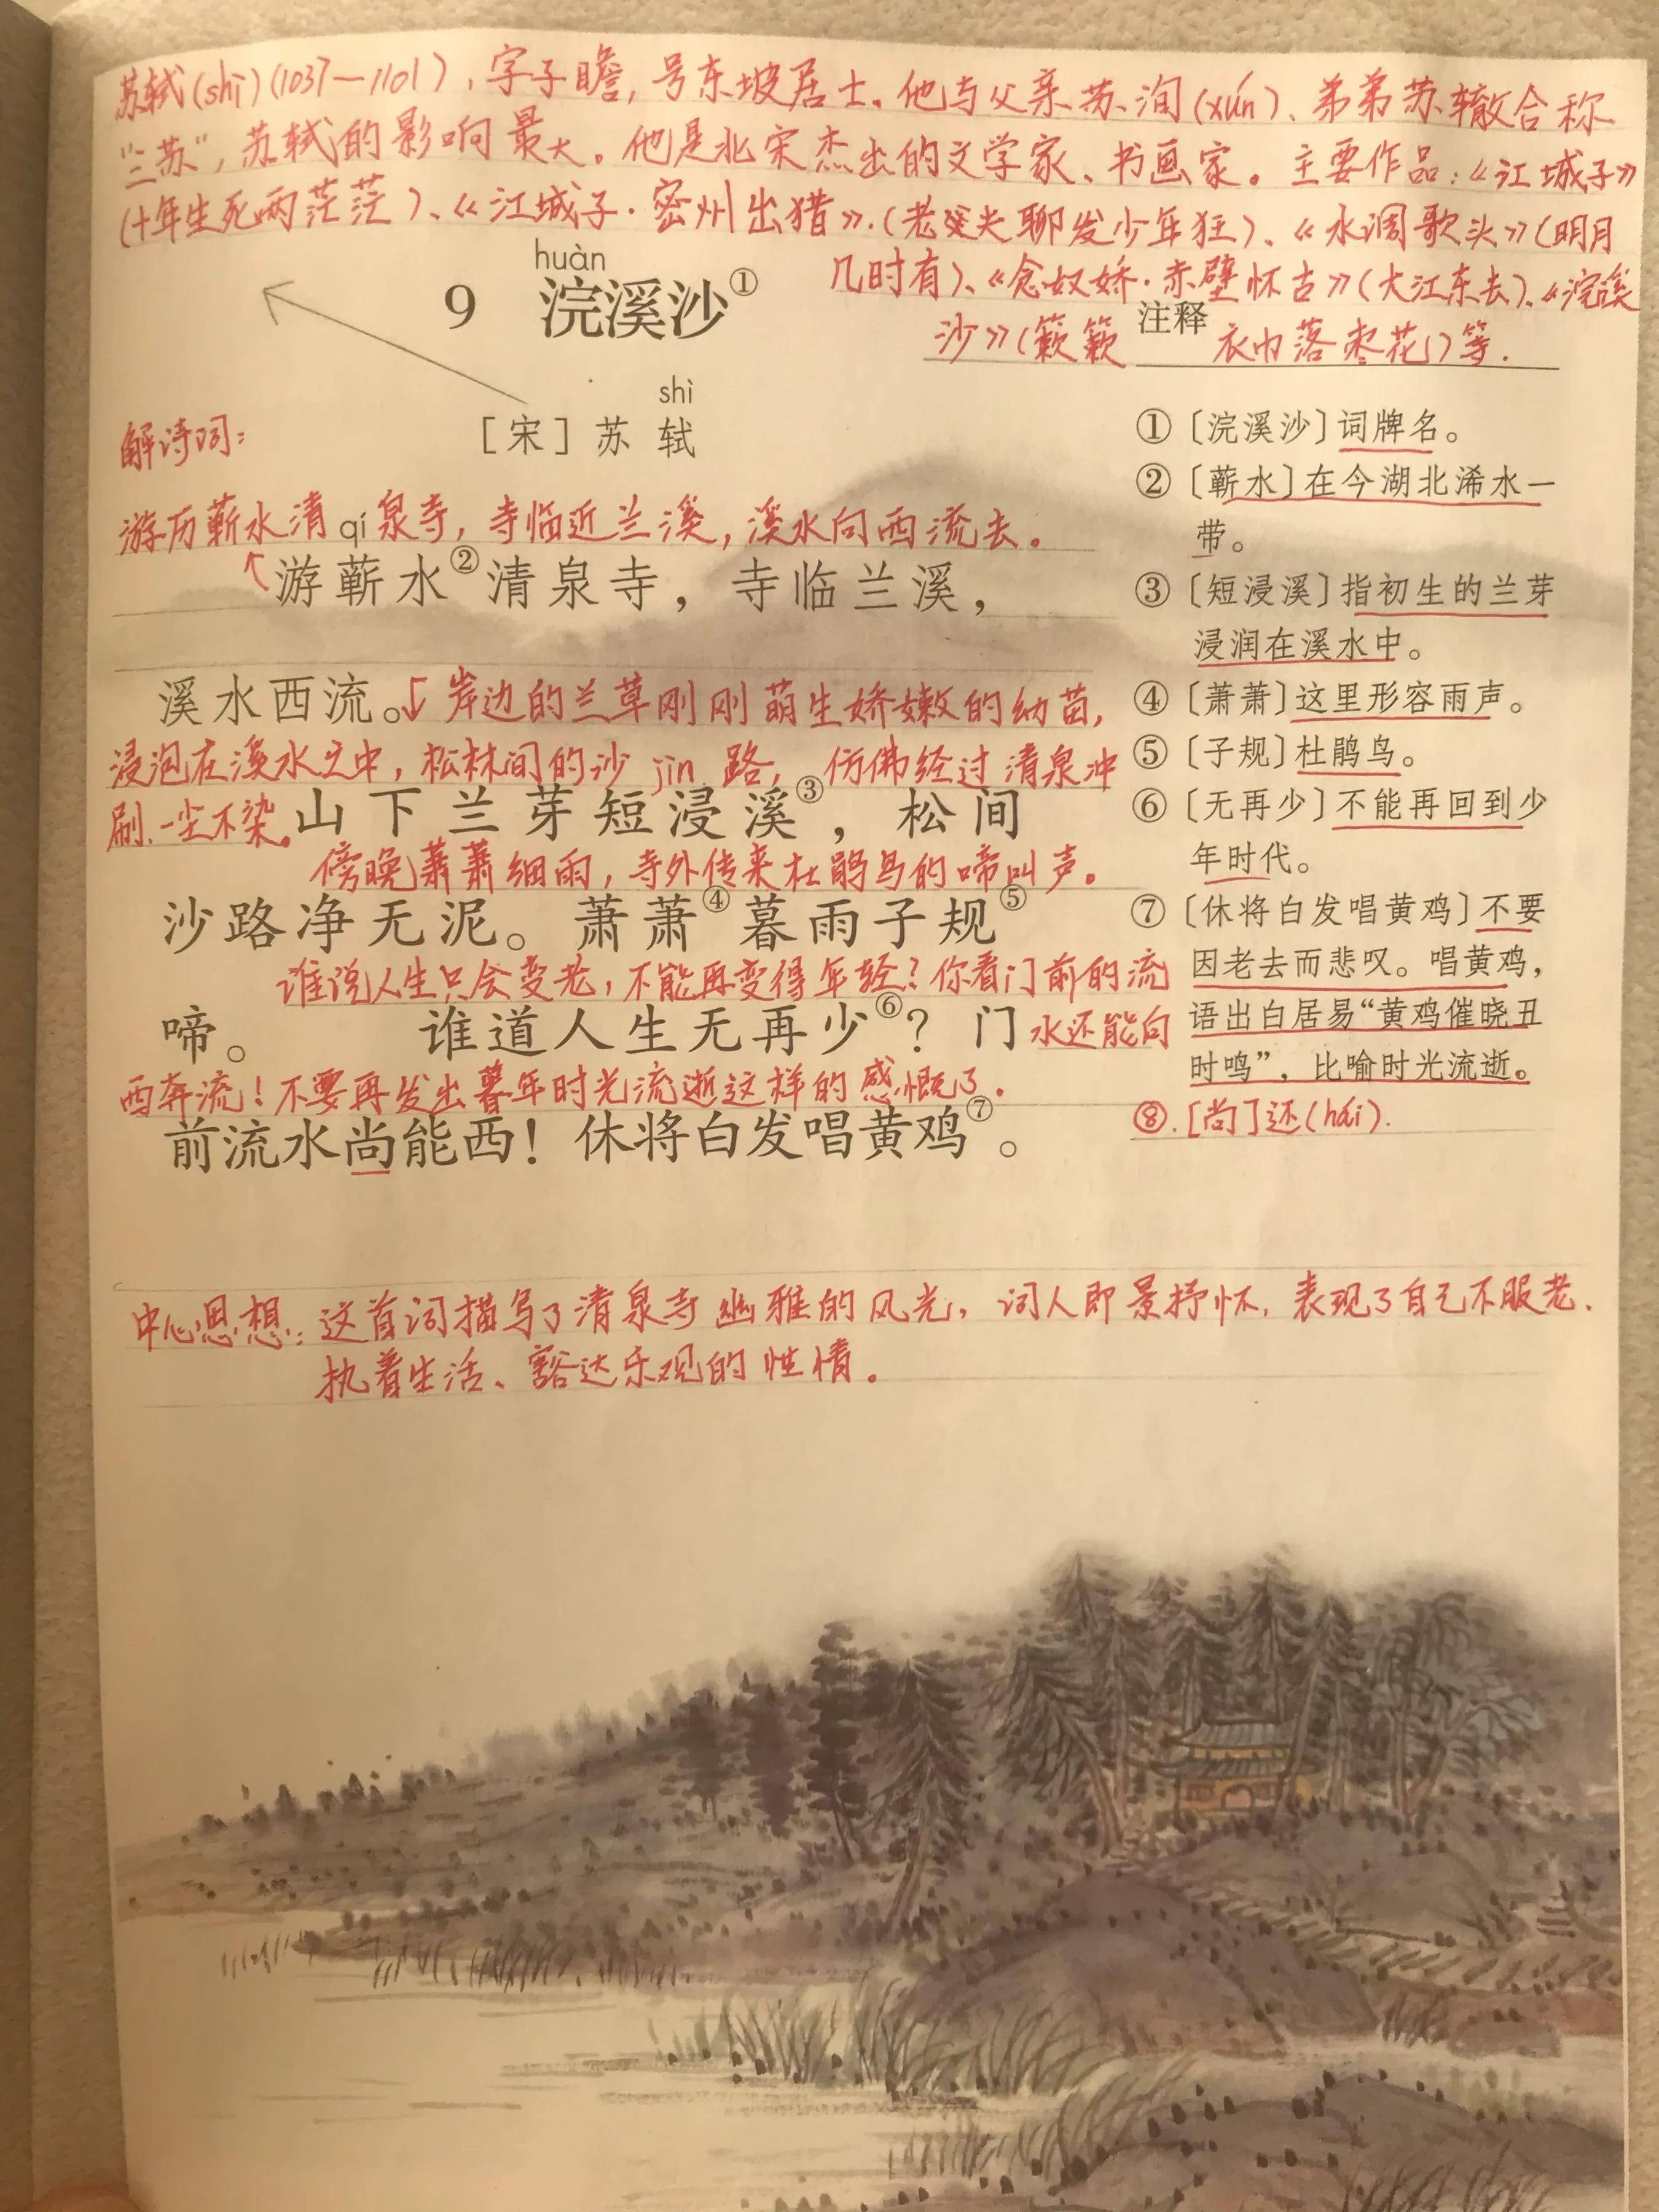 苏轼(shì)(1037—1101),字子瞻,号东坡居士。他与父亲苏洵(xún)、弟弟苏辙合称
“三苏”,苏轼的影响最大。他是北宋杰出的文学家、书画家。主要作品:《江城子》
(十年生死两茫茫)、《江城子·密州出猎》.(老夫聊发少年狂)、《水调歌头》(明月
几时有)、《念奴娇·赤壁怀古》(大江东去)、《浣溪
沙》(簌簌衣巾落枣花)等.
huàn
9 浣溪沙①
shì
[宋]苏 轼
解诗词:
游历蕲水清泉寺,寺临近兰溪,溪水向西流去。
qí
游蕲水②清泉寺,寺临兰溪,
溪水西流。
岸边的兰草刚刚萌生娇嫩的幼苗,
浸泡在溪水之中,松林间的沙路,仿佛经过清泉冲
刷.一尘不染。
jìn
山下兰芽短浸溪③,松间
傍晚萧萧细雨,寺外传来杜鹃鸟的啼叫声。
沙路净无泥。萧萧④暮雨子规⑤
谁说人生只会变老,不能再变得年轻?你看门前的流
啼。 谁道人生无再少⑥?门
水还能向
西奔流!不要再发出暮年时光流逝这样的感慨了.
前流水尚能西!休将白发唱黄鸡⑦。
注释
①〔浣溪沙〕词牌名。
②〔蕲水〕在今湖北浠水一
带。
③〔短浸溪〕指初生的兰芽
浸润在溪水中。
④〔萧萧〕这里形容雨声。
⑤〔子规〕杜鹃鸟。
⑥〔无再少〕不能再回到少
年时代。
⑦〔休将白发唱黄鸡〕不要
因老去而悲叹。唱黄鸡,
语出白居易“黄鸡催晓丑
时鸣”,比喻时光流逝。
⑧.[尚]还(hái).
中心思想:这首词描写了清泉寺幽雅的风光,词人即景抒怀,表现了自己不服老.
执着生活、豁达乐观的性情。